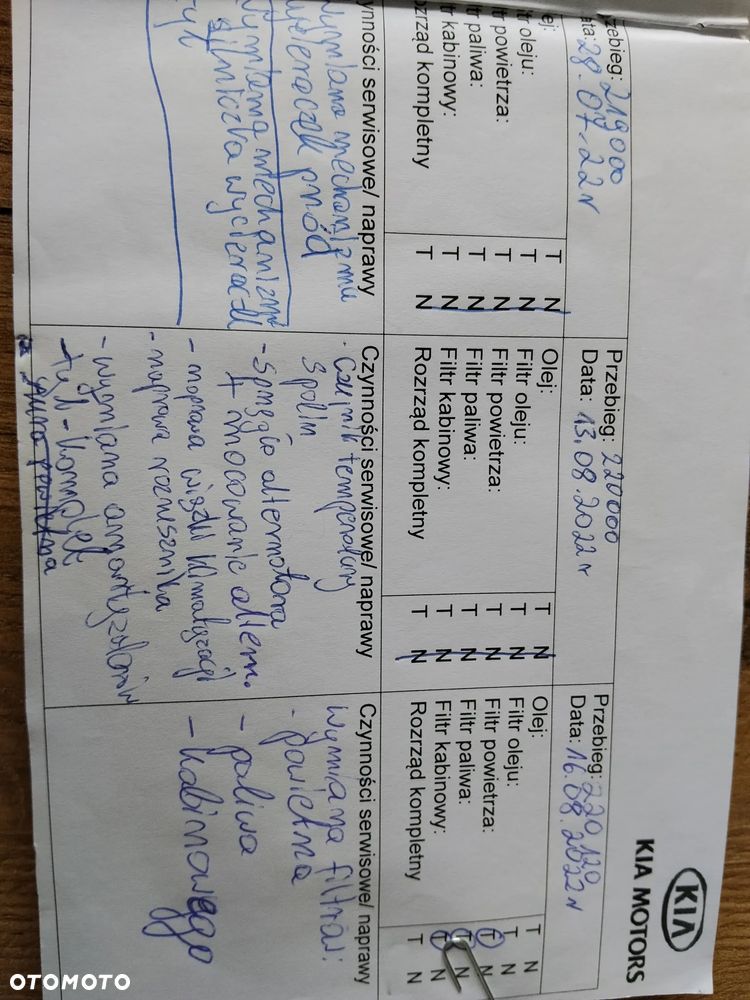 KIA
KIA MOTORS
Przebieg: 219000
ata: 28.07.22r
lej:
ltr oleju:
tr powietrza:
tr paliwa:
tr kabinowy:
ozrząd kompletny
T N
T N
T N
T N
T N
zynności serwisowe/ naprawy
Wymiana mechanizmu
wycieraczek przód
Wymiana mechanizmu
silniczka wycieraczki
tył
Przebieg: 220000
Data: 13.08.2022r
Olej:
Filtr oleju:
Filtr powietrza:
Filtr paliwa:
Filtr kabinowy:
Rozrząd kompletny
T N
T N
T N
T N
T N
T N
Czynności serwisowe/ naprawy
- Czujnik temperatury
spalin
- sprzęgło alternatora
+ mocowanie altern.
- naprawa wiązki klimatyzacji
- naprawa rozrusznika
- wymiana amortyzatorów
tył - komplet
powietrza
Przebieg: 220120
Data: 16.08.2022r
Olej:
Filtr oleju:
Filtr powietrza:
Filtr paliwa:
Filtr kabinowy:
Rozrząd kompletny
T N
T N
T N
T N
T N
T N
Czynności serwisowe/ naprawy
Wymiana filtrów:
- powietrza
- paliwa
- kabinowego
OTOMOTO